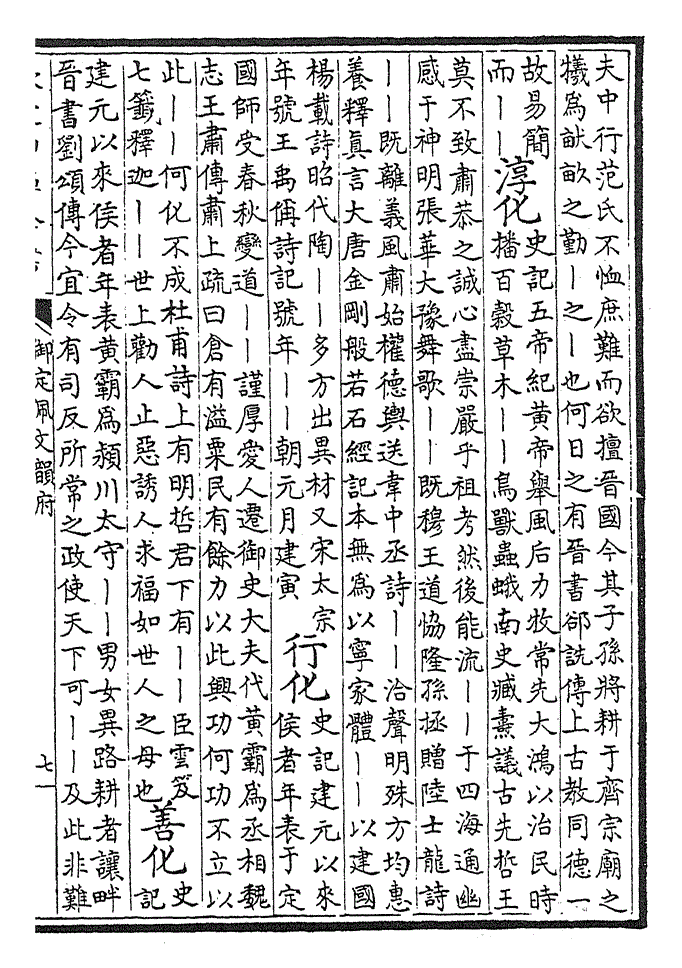 夫中行范氏不恤庶難而欲擅晉國今其子孫將耕于齊宗廟之
犧爲畎畝之勤丨之丨也何日之有晉書郤詵傳上古教同德一
故易簡
而丨丨
淳化
史記五帝紀黄帝舉風后力牧常先大鴻以治民時
播百穀草木丨丨鳥獸蟲蛾南史臧燾議古先哲王
莫不致肅恭之誠心盡崇嚴乎祖考然後能流丨丨于四海通幽
感于神明張華大豫舞歌丨丨既穆王道協隆孫拯贈陸士龍詩
丨丨既離義風肅始權德輿送韋中丞詩丨丨洽聲明殊方均惠
養釋真言大唐金剛般若石經記本無爲以寧家體丨丨以建國
楊載詩昭代陶丨丨多方出異材又宋太宗
年號王禹偁詩記號年丨丨朝元月建寅
行化
史記建元以來
侯者年表于定
國師受春秋變道丨丨謹厚愛人遷御史大夫代黄霸爲丞相魏
志王肅傳肅上疏曰倉有溢粟民有餘力以此興功何功不立以
此丨丨何化不成杜甫詩上有明哲君下有丨丨臣雲笈
七籤釋迦丨丨世上勸人止惡誘人求福如世人之母也
善化
史
記
建元以來侯者年表黄霸爲潁川太守丨丨男女異路耕者讓畔
晉書劉頌傳今宜令有司反所常之政使天下可丨丨及此非難
御定佩文韻府
七